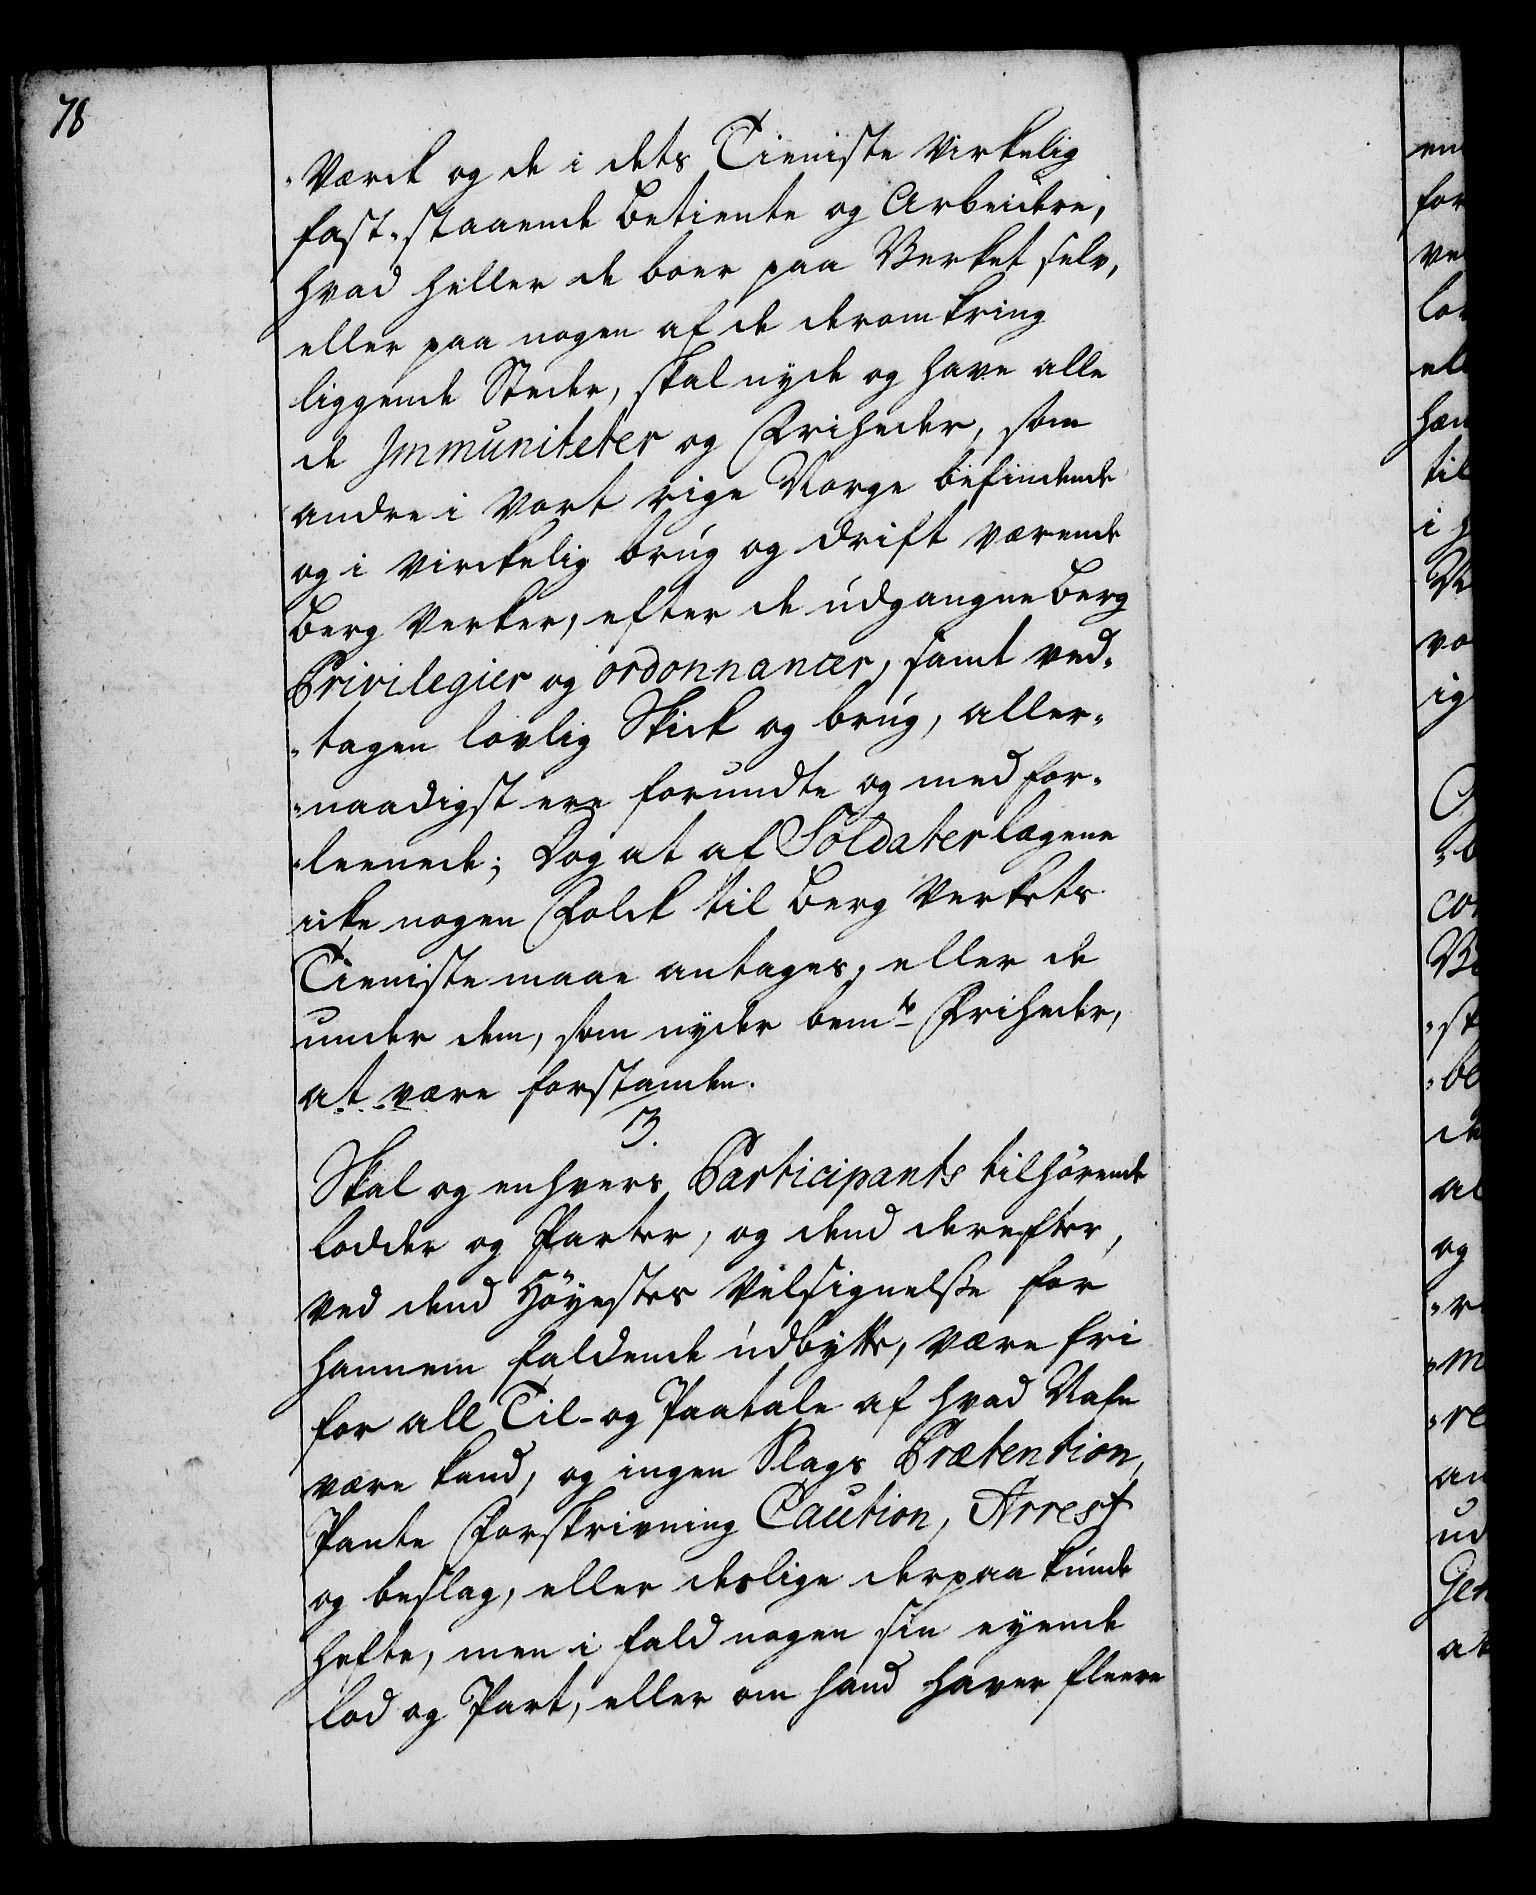 78
"Værck og de i dets Tieniste virkelig
fast-staaende betiente og Arbeidere,
hvad heller de boer paa Verket selv,
eller paa nogen af de deromkring
liggende Steder, skal nyde og have alle
de Immuniteter og Friheder, som
andre i Vort rige Norge befindende
og i virckelig brug og drift værende
Berg Verker, efter de udgangne Berg
Privilegier og ordonnancer, samt ved-
"tagen lovlig Skick og brug, aller-
"naadigst ere forundte og med for-
"leenede; Dog at af Soldater lægene
icke nogen Folck til Berg Verkets
Tieniste maae antages, eller de
under dem, som nyder bemte Friheder,
at være forstanden.
3.
Skal og enhvers Participants tilhörende
lodder og Parter, og dend derefter,
ved dend Höyestes Velsignelse for
hannem faldende udbytte, være fri
for all Til- og Paatale af hvad Nafn
være kand, og ingen Slags Prætention,
Pante Forskrivning Caution, Arrest
og beslag, eller deslige derpaa kunde
hefte, men i fald nogen sin eyende
lod og Part, eller om hand haver fleere
en
for
ve
lov
ell
han
til
i
vo
ig
co
"st
"be
de
al
og
"m
"re
an
ud
Gen
at